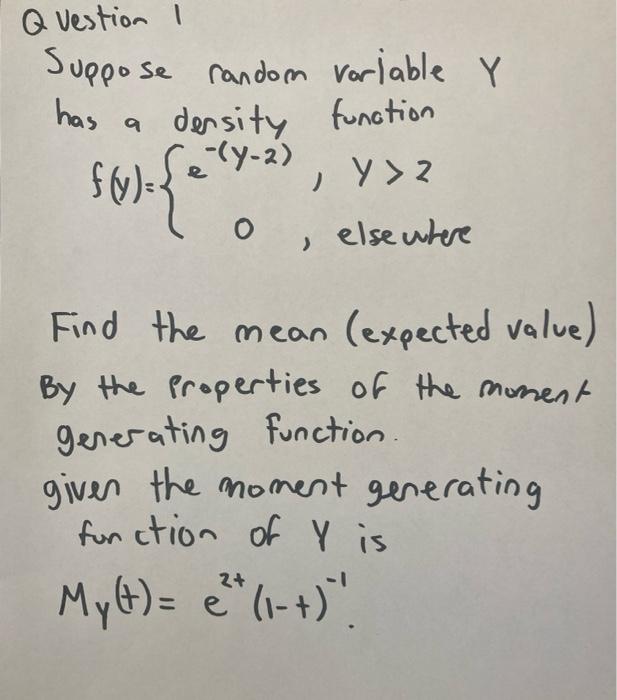 Question 1
Suppose random variable Y
has a density function
f(y)={ e^-(y-2) , y>2
0 , elsewhere
Find the mean (expected value)
By the Properties of the moment
generating function.
given the moment generating
function of Y is
M_Y(t)= e^2t (1-t)^-1.